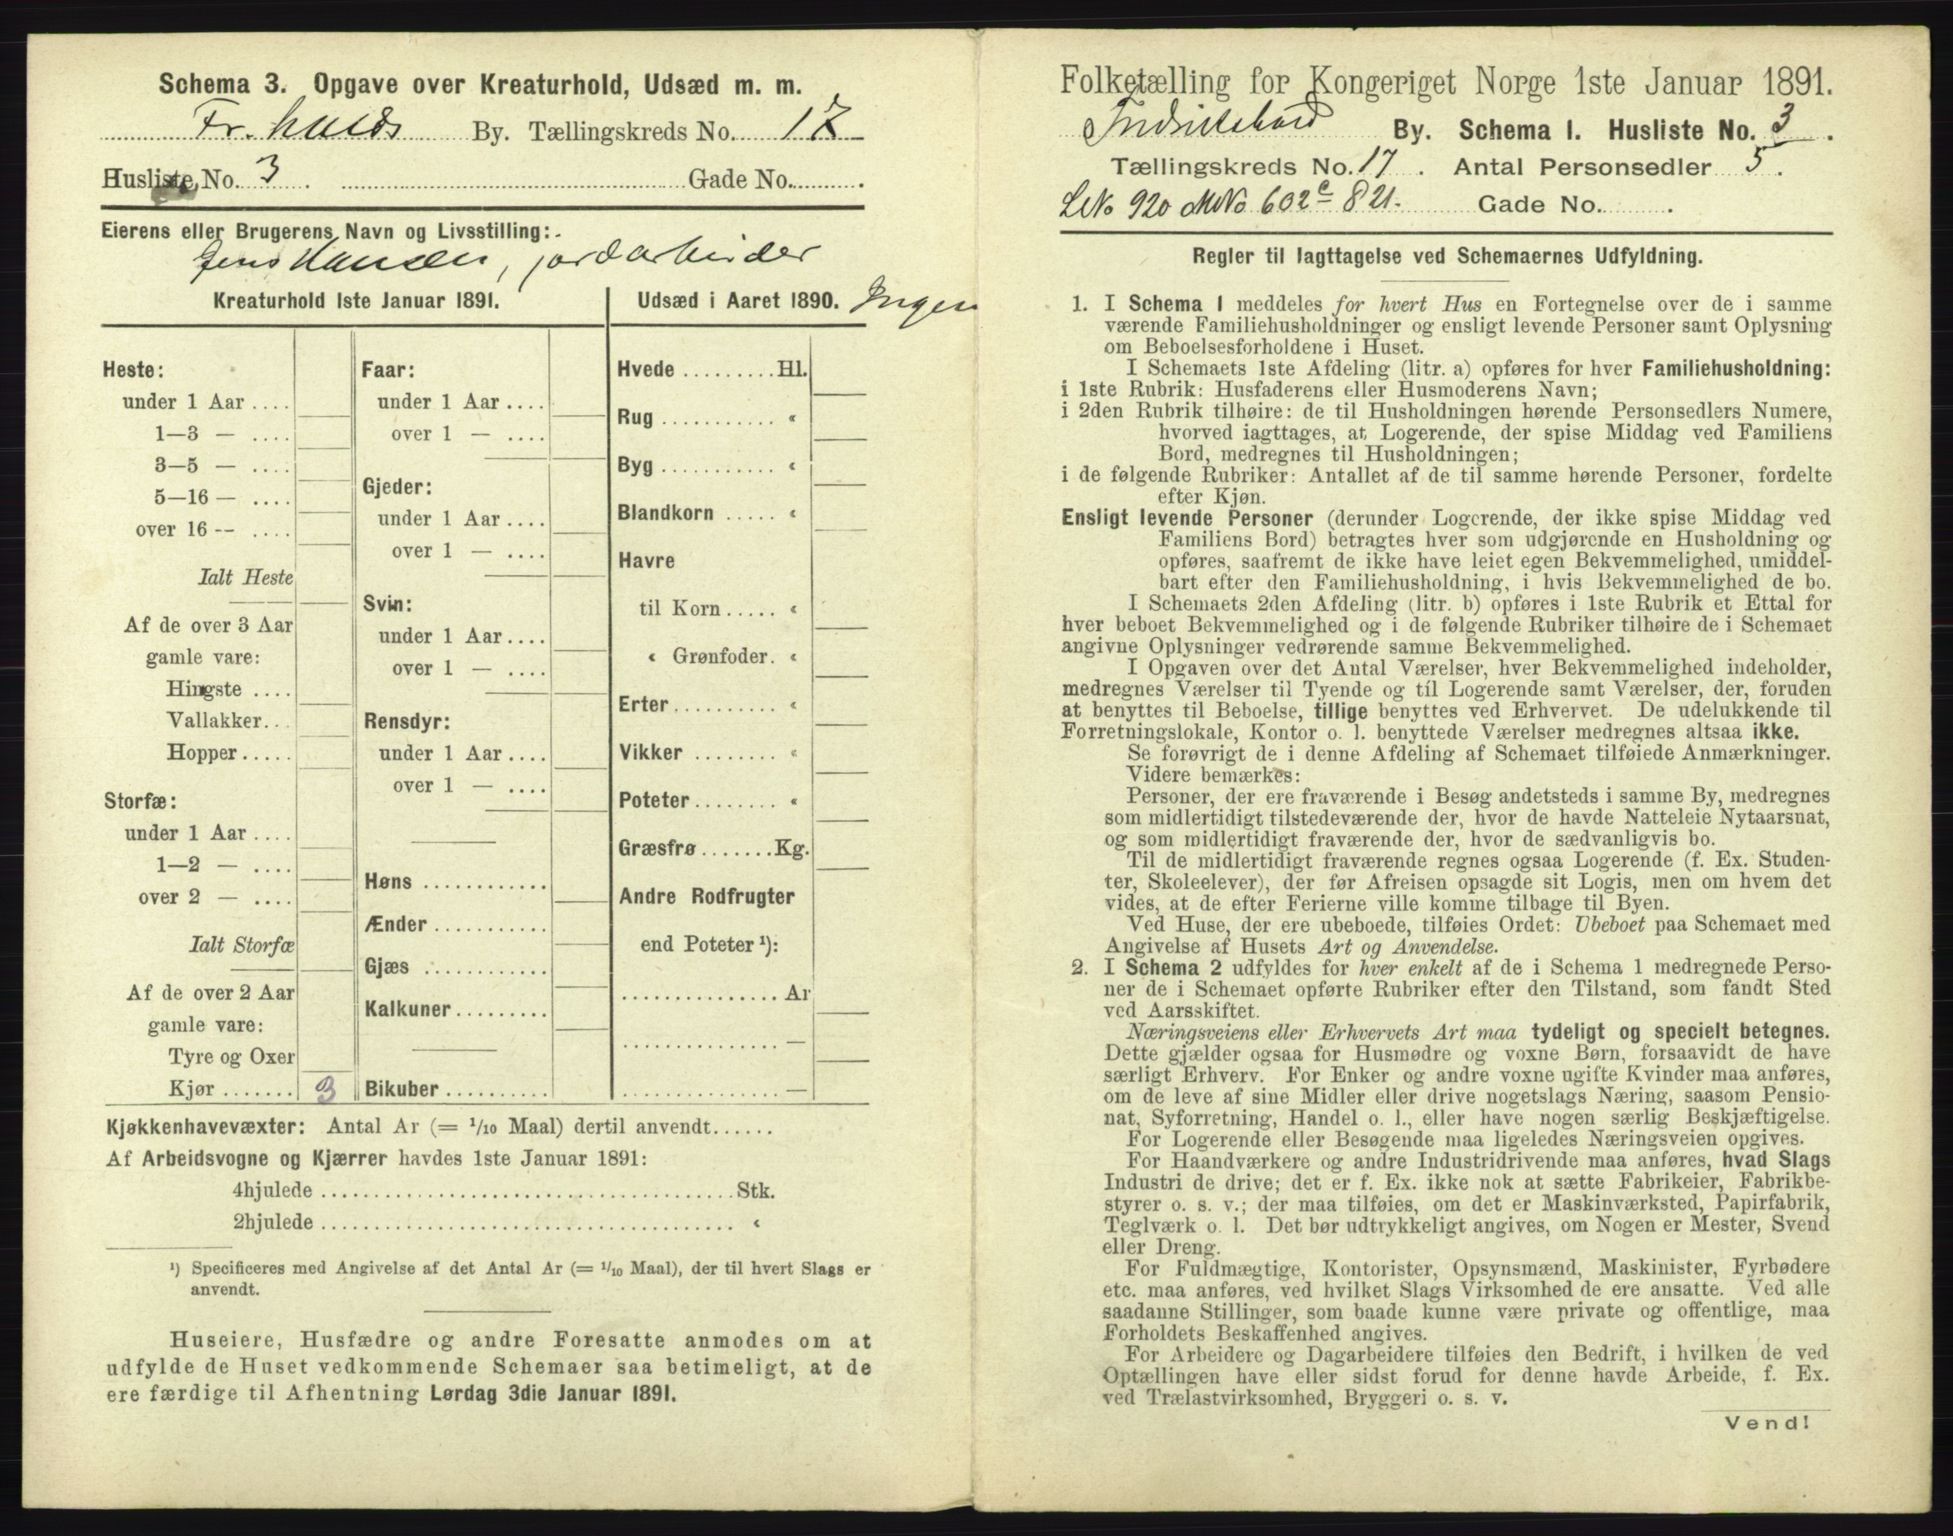 Schema 3. Opgave over Kreaturhold, Udsæd m. m.
Fr.halds By. Tællingskreds No. 17
Husliste No. 3. Gade No. .
Eierens eller Brugerens Navn og Livsstilling:
Jens Hansen, jordarbeider
Kreaturhold 1ste Januar 1891.
Udsæd i Aaret 1890. Ingen
Heste:
under 1 Aar ....
1—3 — ....
3—5 — ....
5—16 — ....
over 16 -- ....
Ialt Heste
Af de over 3 Aar
gamle vare:
Hingste ....
Vallakker...
Hopper.....
Storfæ:
under 1 Aar ....
1—2 — ....
over 2 — ....
Ialt Storfæ
Af de over 2 Aar
gamle vare:
Tyre og Oxer
Kjør ....... 3
Faar:
under 1 Aar ....
over 1 — ....
Gjeder:
under 1 Aar ....
over 1 — ....
Svin:
under 1 Aar ....
over 1 — ....
Rensdyr:
under 1 Aar ....
over 1 — ....
Høns ............
Ænder ...........
Gjæs ............
Kalkuner.........
Bikuber ..........
Hvede .........Hl.
Rug ........... «
Byg ........... «
Blandkorn ..... «
Havre
til Korn ..... «
« Grønfoder. «
Erter.......... «
Vikker ........ «
Poteter ........ «
Græsfrø .......Kg.
Andre Rodfrugter
end Poteter ¹):
............... Ar
............... —
............... —
Kjøkkenhavevæxter: Antal Ar (= 1/10 Maal) dertil anvendt......
Af Arbeidsvogne og Kjærrer havdes 1ste Januar 1891:
4hjulede ........................................Stk.
2hjulede ........................................ «
¹) Specificeres med Angivelse af det Antal Ar (= 1/10 Maal), der til hvert Slags er
anvendt.
Huseiere, Husfædre og andre Foresatte anmodes om at
udfylde de Huset vedkommende Schemaer saa betimeligt, at de
ere færdige til Afhentning Lørdag 3die Januar 1891.
Folketælling for Kongeriget Norge 1ste Januar 1891.
By. Schema 1. Husliste No. 3.
Tællingskreds No. 17. Antal Personsedler 5.
LNo 920 MNo 602c 821. Gade No. .
Regler til Iagttagelse ved Schemaernes Udfyldning.
1. I Schema 1 meddeles for hvert Hus en Fortegnelse over de i samme
værende Familiehusholdninger og ensligt levende Personer samt Oplysning
om Beboelsesforholdene i Huset.
I Schemaets 1ste Afdeling (litr. a) opføres for hver Familiehusholdning:
i 1ste Rubrik: Husfaderens eller Husmoderens Navn;
i 2den Rubrik tilhøire: de til Husholdningen hørende Personsedlers Numere,
hvorved iagttages, at Logerende, der spise Middag ved Familiens
Bord, medregnes til Husholdningen;
i de følgende Rubriker: Antallet af de til samme hørende Personer, fordelte
efter Kjøn.
Ensligt levende Personer (derunder Logerende, der ikke spise Middag ved
Familiens Bord) betragtes hver som udgjørende en Husholdning og
opføres, saafremt de ikke have leiet egen Bekvemmelighed, umiddel-
bart efter den Familiehusholdning, i hvis Bekvemmelighed de bo.
I Schemaets 2den Afdeling (litr. b) opføres i 1ste Rubrik et Ettal for
hver beboet Bekvemmelighed og i de følgende Rubriker tilhøire de i Schemaet
angivne Oplysninger vedrørende samme Bekvemmelighed.
I Opgaven over det Antal Værelser, hver Bekvemmelighed indeholder,
medregnes Værelser til Tyende og til Logerende samt Værelser, der, foruden
at benyttes til Beboelse, tillige benyttes ved Erhvervet. De udelukkende til
Forretningslokale, Kontor o. l. benyttede Værelser medregnes altsaa ikke.
Se forøvrigt de i denne Afdeling af Schemaet tilføiede Anmærkninger.
Videre bemærkes:
Personer, der ere fraværende i Besøg andetsteds i samme By, medregnes
som midlertidigt tilstedeværende der, hvor de havde Natteleie Nytaarsnat,
og som midlertidigt fraværende der, hvor de sædvanligvis bo.
Til de midlertidigt fraværende regnes ogsaa Logerende (f. Ex. Studen-
ter, Skoleelever), der før Afreisen opsagde sit Logis, men om hvem det
vides, at de efter Ferierne ville komme tilbage til Byen.
Ved Huse, der ere ubeboede, tilføies Ordet: Ubeboet paa Schemaet med
Angivelse af Husets Art og Anvendelse.
2. I Schema 2 udfyldes for hver enkelt af de i Schema 1 medregnede Perso-
ner de i Schemaet opførte Rubriker efter den Tilstand, som fandt Sted
ved Aarsskiftet.
Næringsveiens eller Erhvervets Art maa tydeligt og specielt betegnes.
Dette gjælder ogsaa for Husmødre og voxne Børn, forsaavidt de have
særligt Erhverv. For Enker og andre voxne ugifte Kvinder maa anføres,
om de leve af sine Midler eller drive nogetslags Næring, saasom Pensio-
nat, Syforretning, Handel o. l., eller have nogen særlig Beskjæftigelse.
For Logerende eller Besøgende maa ligeledes Næringsveien opgives.
For Haandværkere og andre Industridrivende maa anføres, hvad Slags
Industri de drive; det er f. Ex. ikke nok at sætte Fabrikeier, Fabrikbe-
styrer o. s. v.; der maa tilføies, om det er Maskinværksted, Papirfabrik,
Teglværk o. l. Det bør udtrykkeligt angives, om Nogen er Mester, Svend
eller Dreng.
For Fuldmægtige, Kontorister, Opsynsmænd, Maskinister, Fyrbødere
etc. maa anføres, ved hvilket Slags Virksomhed de ere ansatte. Ved alle
saadanne Stillinger, som baade kunne være private og offentlige, maa
Forholdets Beskaffenhed angives.
For Arbeidere og Dagarbeidere tilføies den Bedrift, i hvilken de ved
Optællingen have eller sidst forud for denne havde Arbeide, f. Ex.
ved Trælastvirksomhed, Bryggeri o. s. v.
Vend!